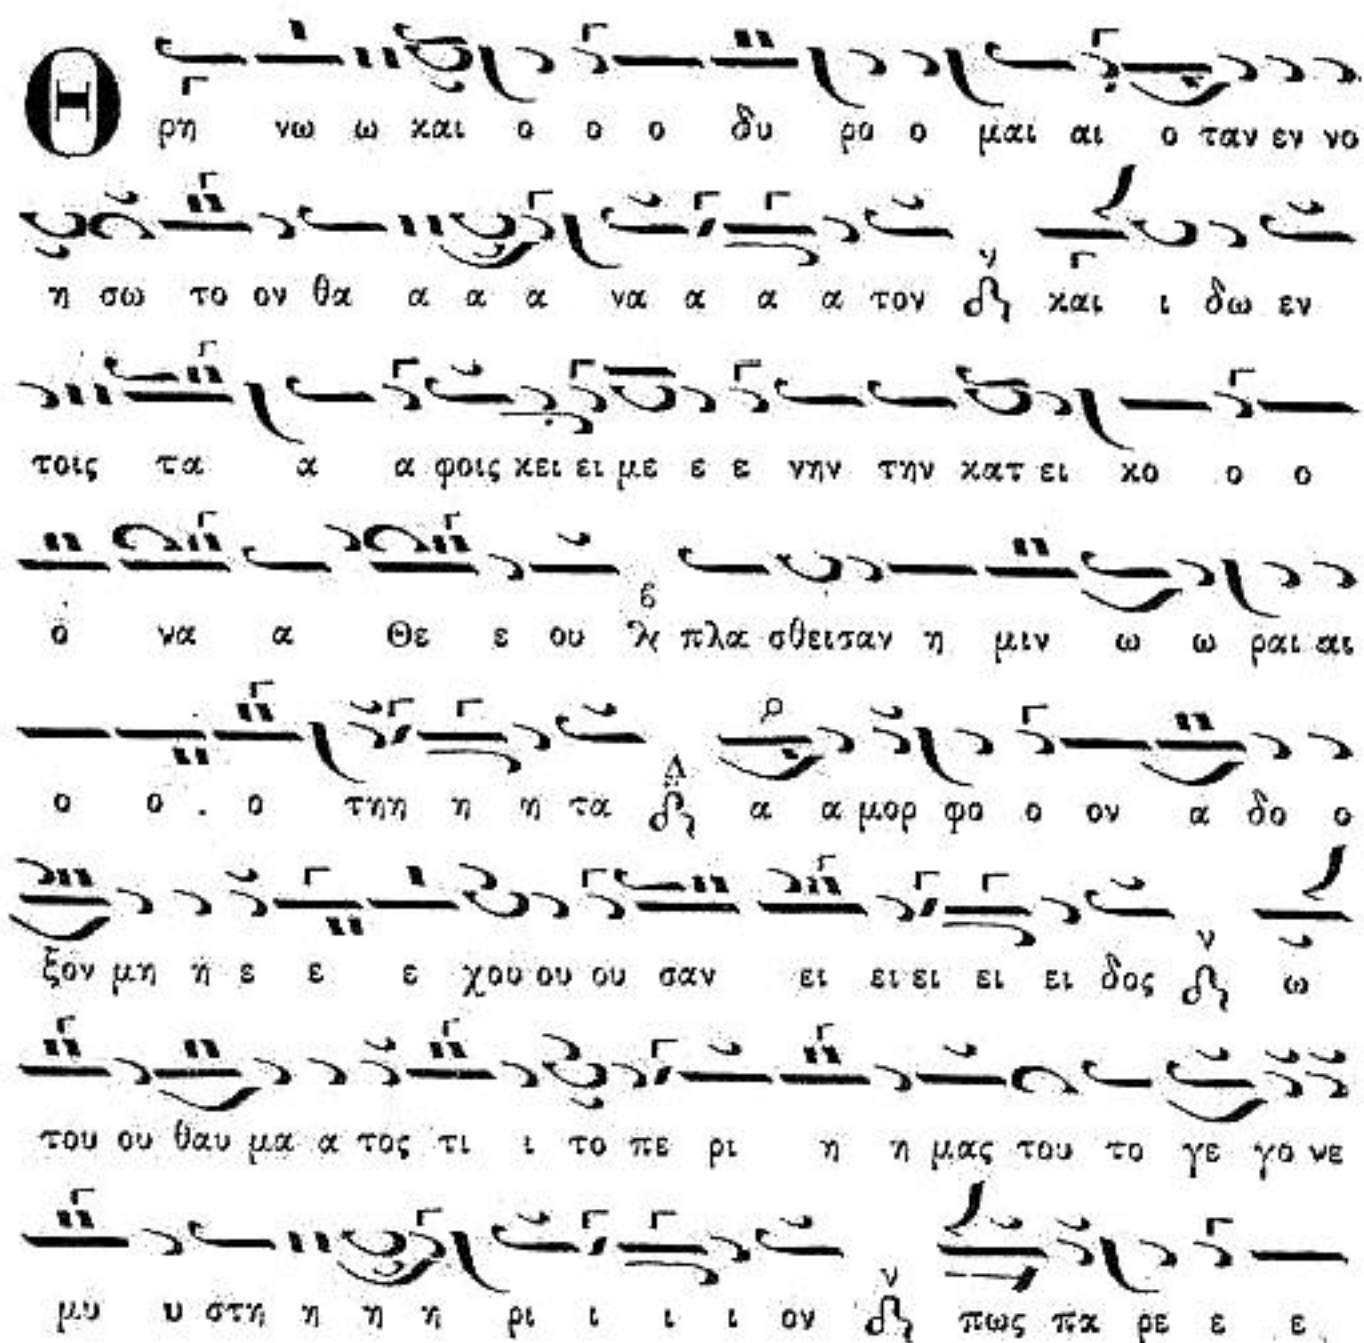 Θ ρη νω ω και ο ο ο δυ ρο ο μαι αι ο ταν εν νο
η σω το ον θα α α α να α α α τον ν και ι δω εν
τοις τα α α φοις κει ει με ε ε νην την κατ ει κο ο ο
ο να α Θε ε ου πλα σθεισαν η μιν ω ω ραι αι
ο ο . ο τηη η η τα Δ α α μορ φο ο ον α δο ο
ξον μη η ε ε ε χου ου ου σαν ει ει ει ει ει δος ν ω
του ου θαυ μα α τος τι ι το πε ρι η η μας του το γε γο νε
μυ υ στη η η η ρι ι ι ι ον ν πως πα ρε ε ε